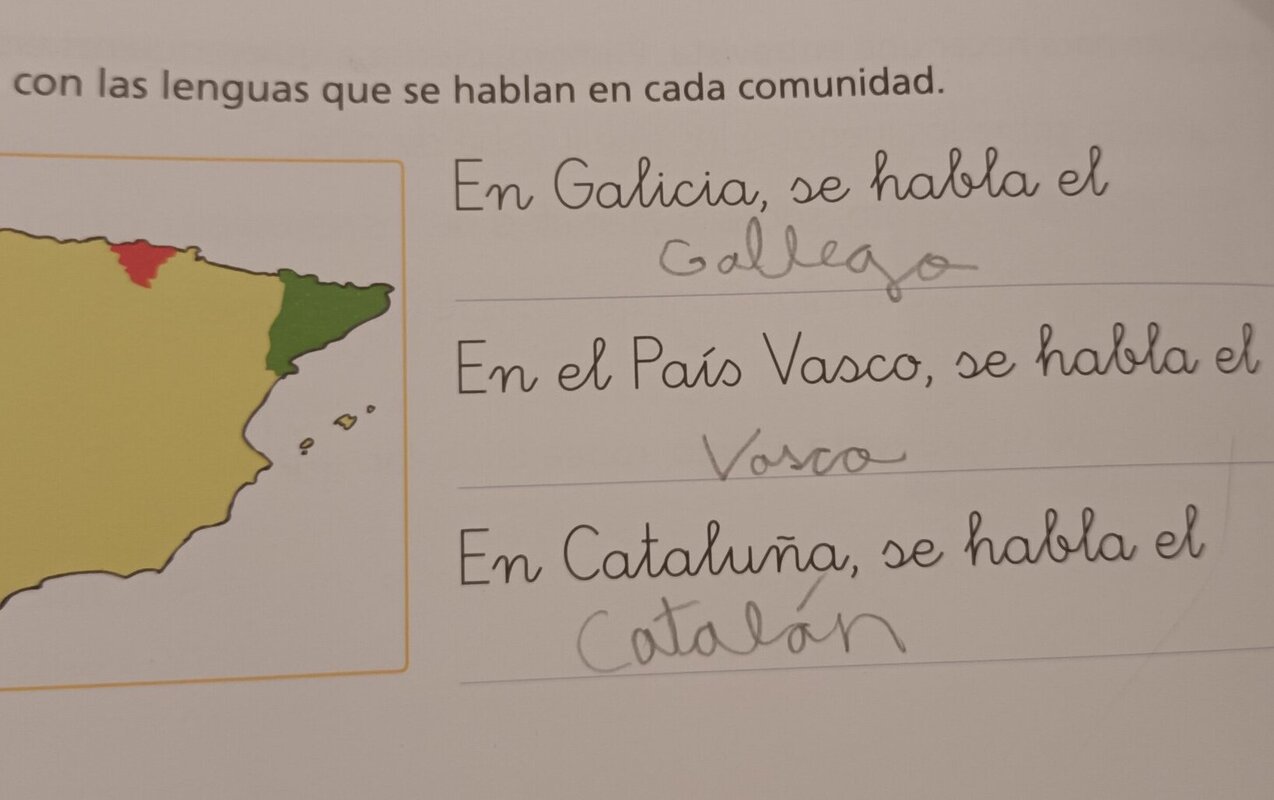 con las lenguas que se hablan en cada comunidad.
En Galicia, se habla el
Gallego
En el País Vasco, se habla el
Vasco
En Cataluña, se habla el
Catalán